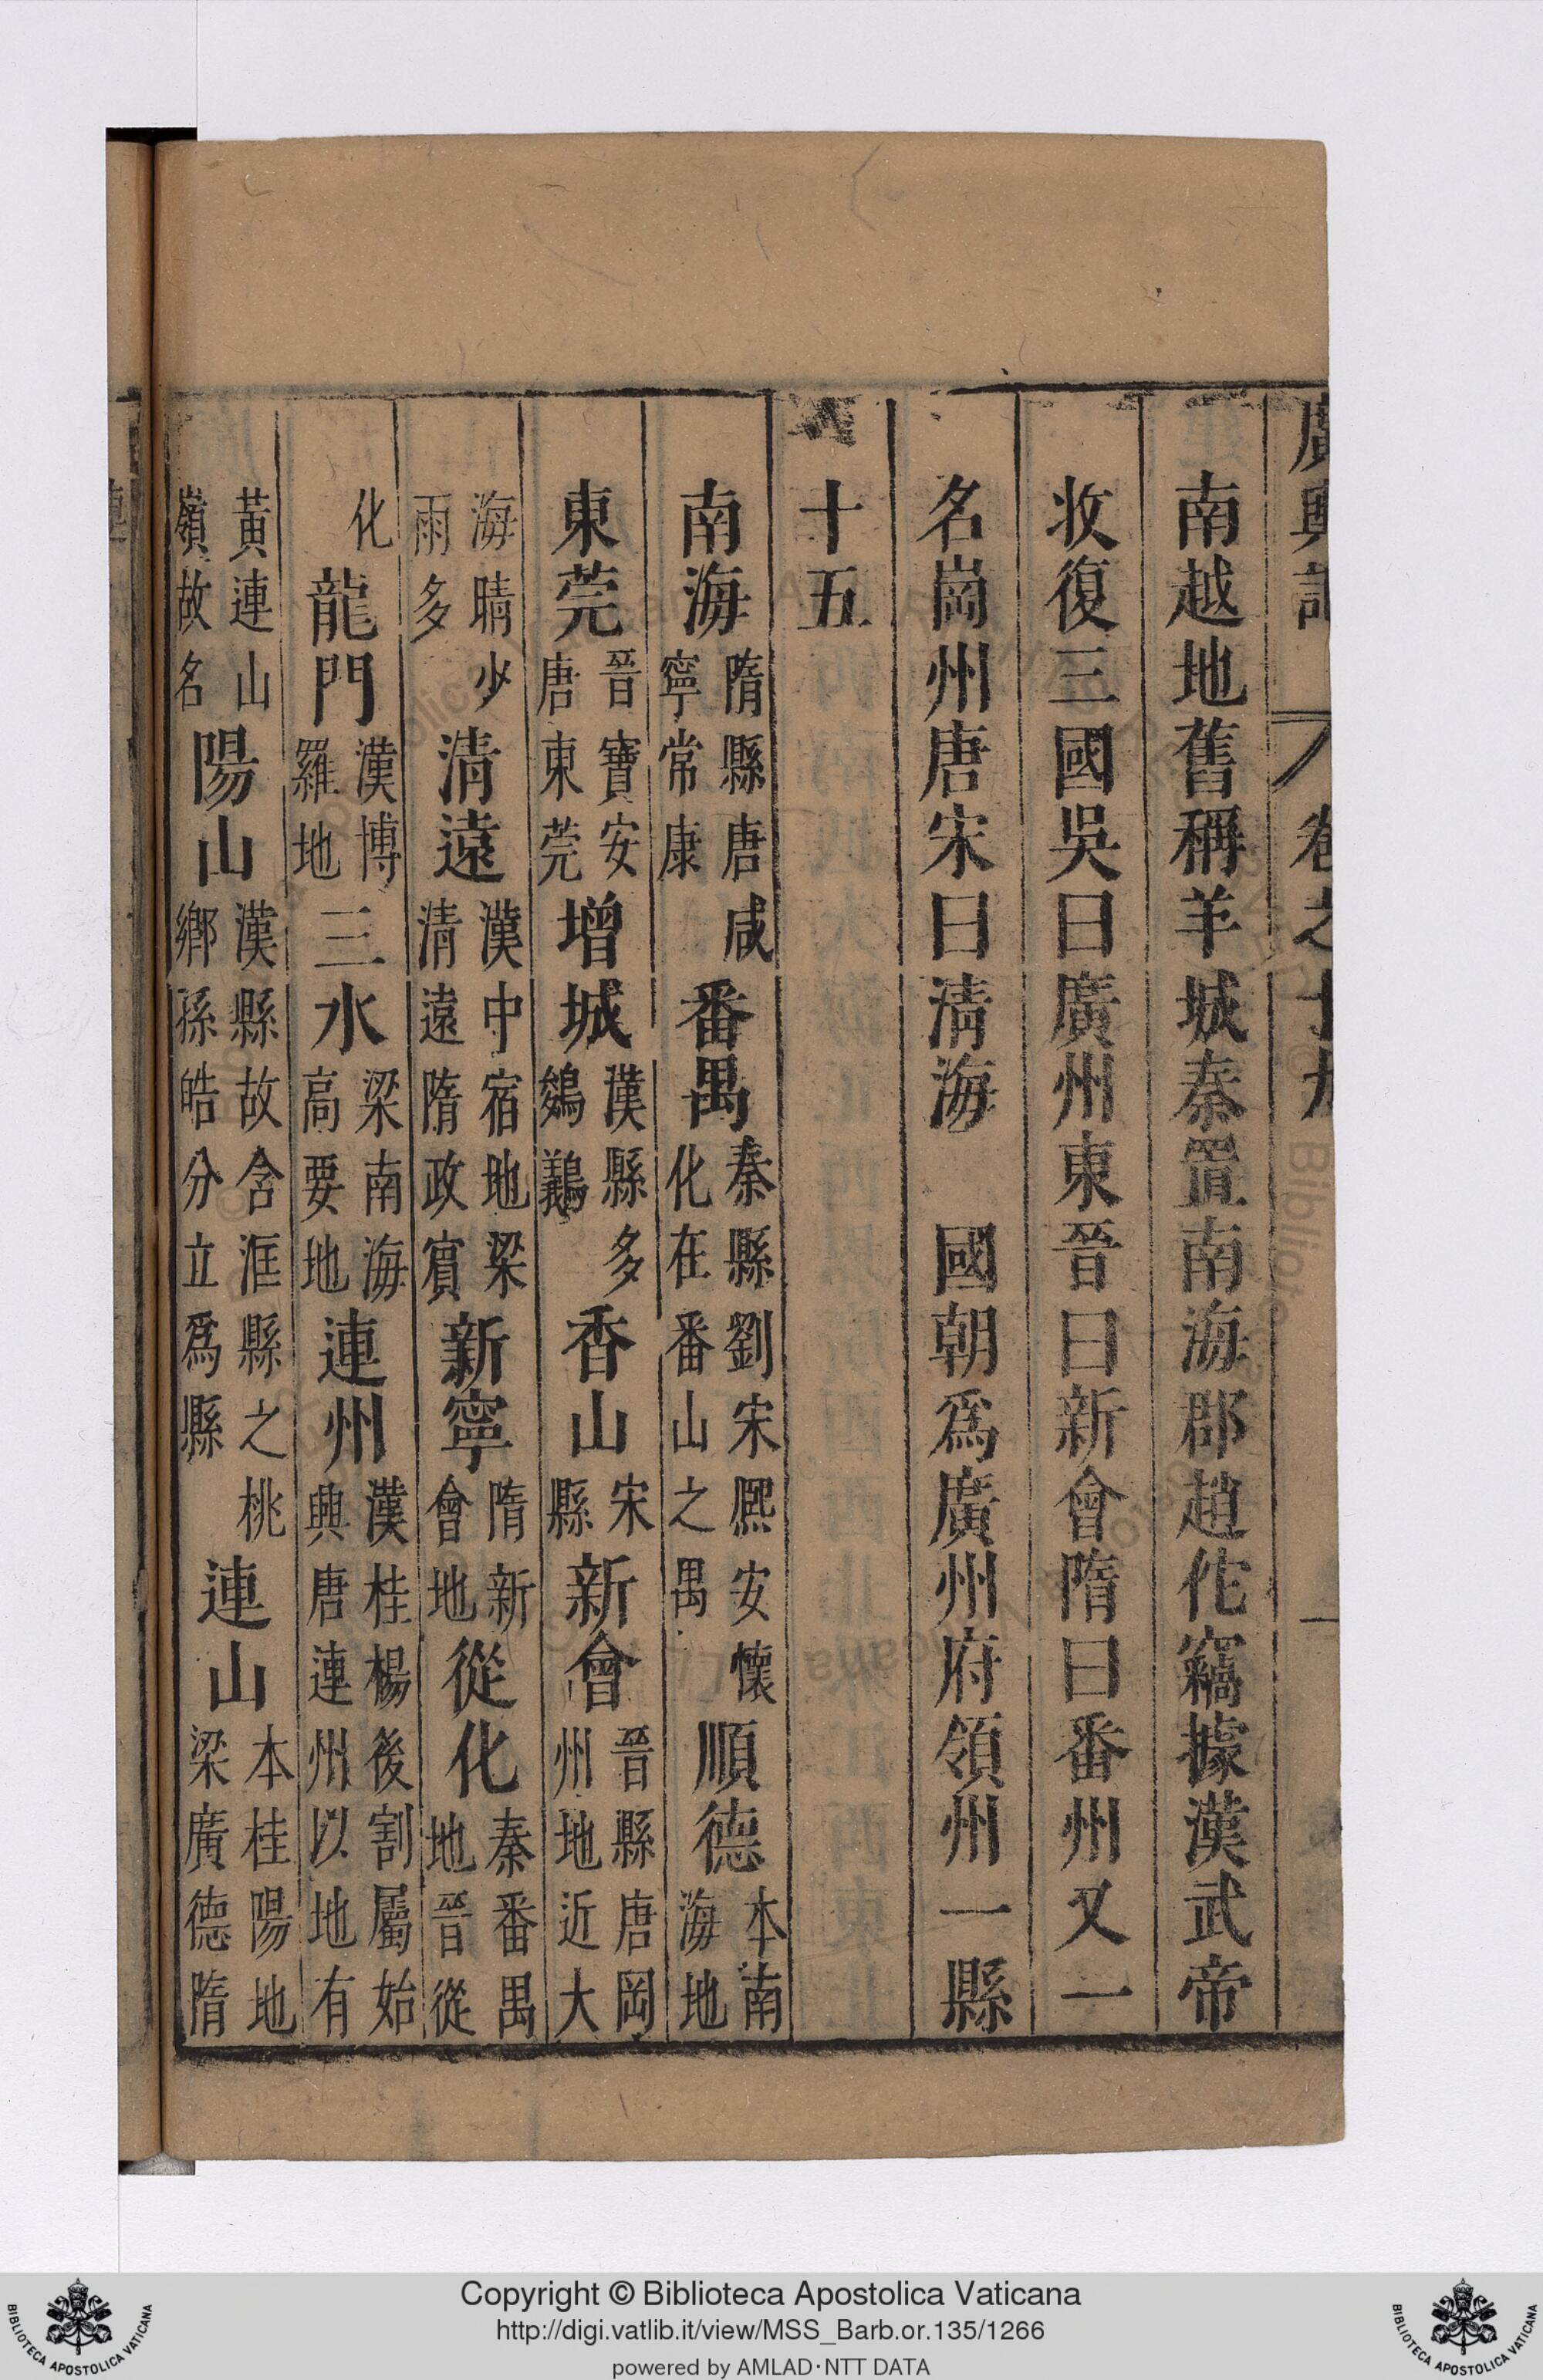 廣輿記 卷之十九 一
南越地舊稱羊城秦置南海郡趙佗竊據漢武帝
收復三國吳曰廣州東晉曰新會隋曰番州又一
名崗州唐宋曰清海 國朝爲廣州府領州一縣
十五
南海隋縣唐咸寧常康 番禺秦縣劉宋熙安懷化在番山之禺 順德本南海地
東莞晉寶安唐東莞 增城漢縣多鷄鵜 香山宋縣 新會晉縣唐岡州地近大
海晴少雨多 清遠漢中宿地梁清遠隋政賓 新寧隋新會地 從化秦番禺地晉從
化 龍門漢博羅地 三水梁南海高要地 連州漢桂楊後割屬始興唐連州以地有
黃連山嶺故名 陽山漢縣故含洭縣之桃鄉孫皓分立爲縣 連山本桂陽地梁廣德隋
Copyright © Biblioteca Apostolica Vaticana
http://digi.vatlib.it/view/MSS_Barb.or.135/1266
powered by AMLAD·NTT DATA
BIBLIOTECA APOSTOLICA VATICANA
BIBLIOTECA APOSTOLICA VATICANA